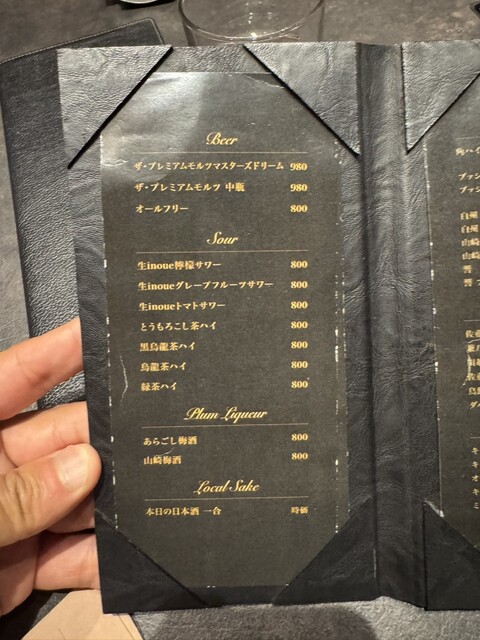 Beer
ザ・プレミアムモルツマスターズドリーム 980
ザ・プレミアムモルツ 中瓶 980
オールフリー 800
Sour
生inoue檸檬サワー 800
生inoueグレープフルーツサワー 800
生inoueトマトサワー 800
とうもろこし茶ハイ 800
黒烏龍茶ハイ 800
烏龍茶ハイ 800
緑茶ハイ 800
Plum Liqueur
あらごし梅酒 800
山崎梅酒 800
Local Sake
本日の日本酒 一合 時価
白州
白州
山崎
山崎
響
響